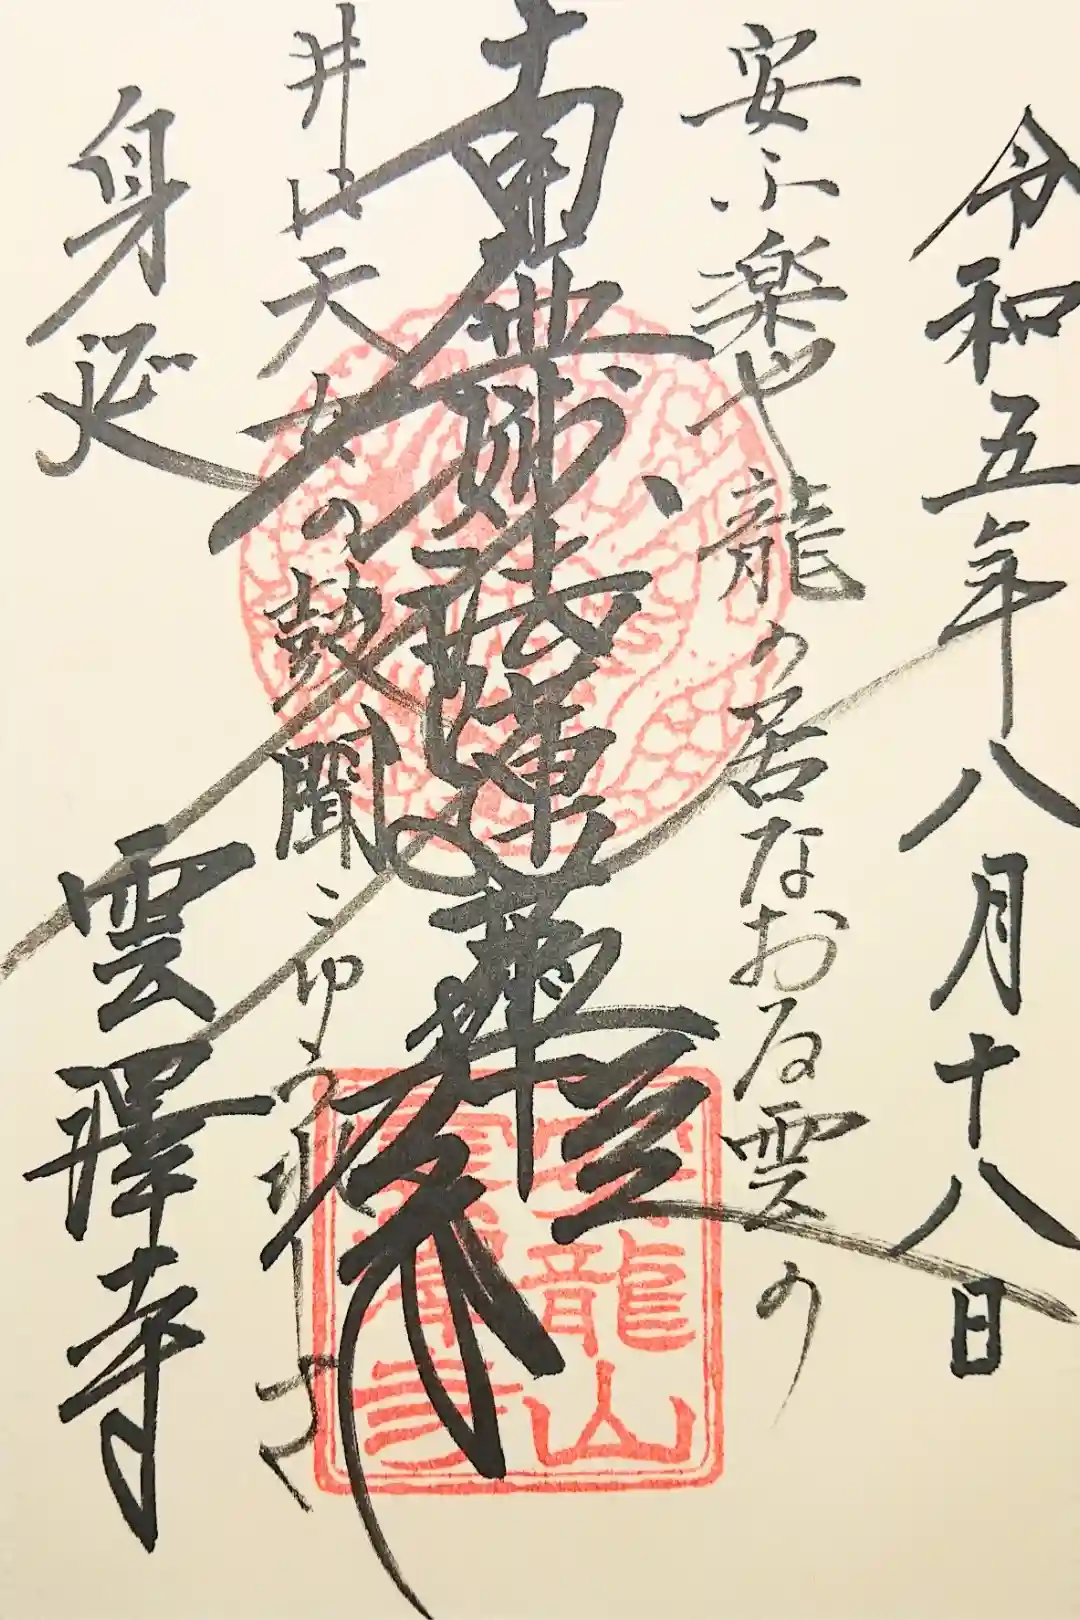 令和五年八月十八日
安ふ楽や龍の居なおる雲の
南無妙法蓮華経
天女の鼓聞こゆ
身延 雲澤寺
龍山
雲澤寺